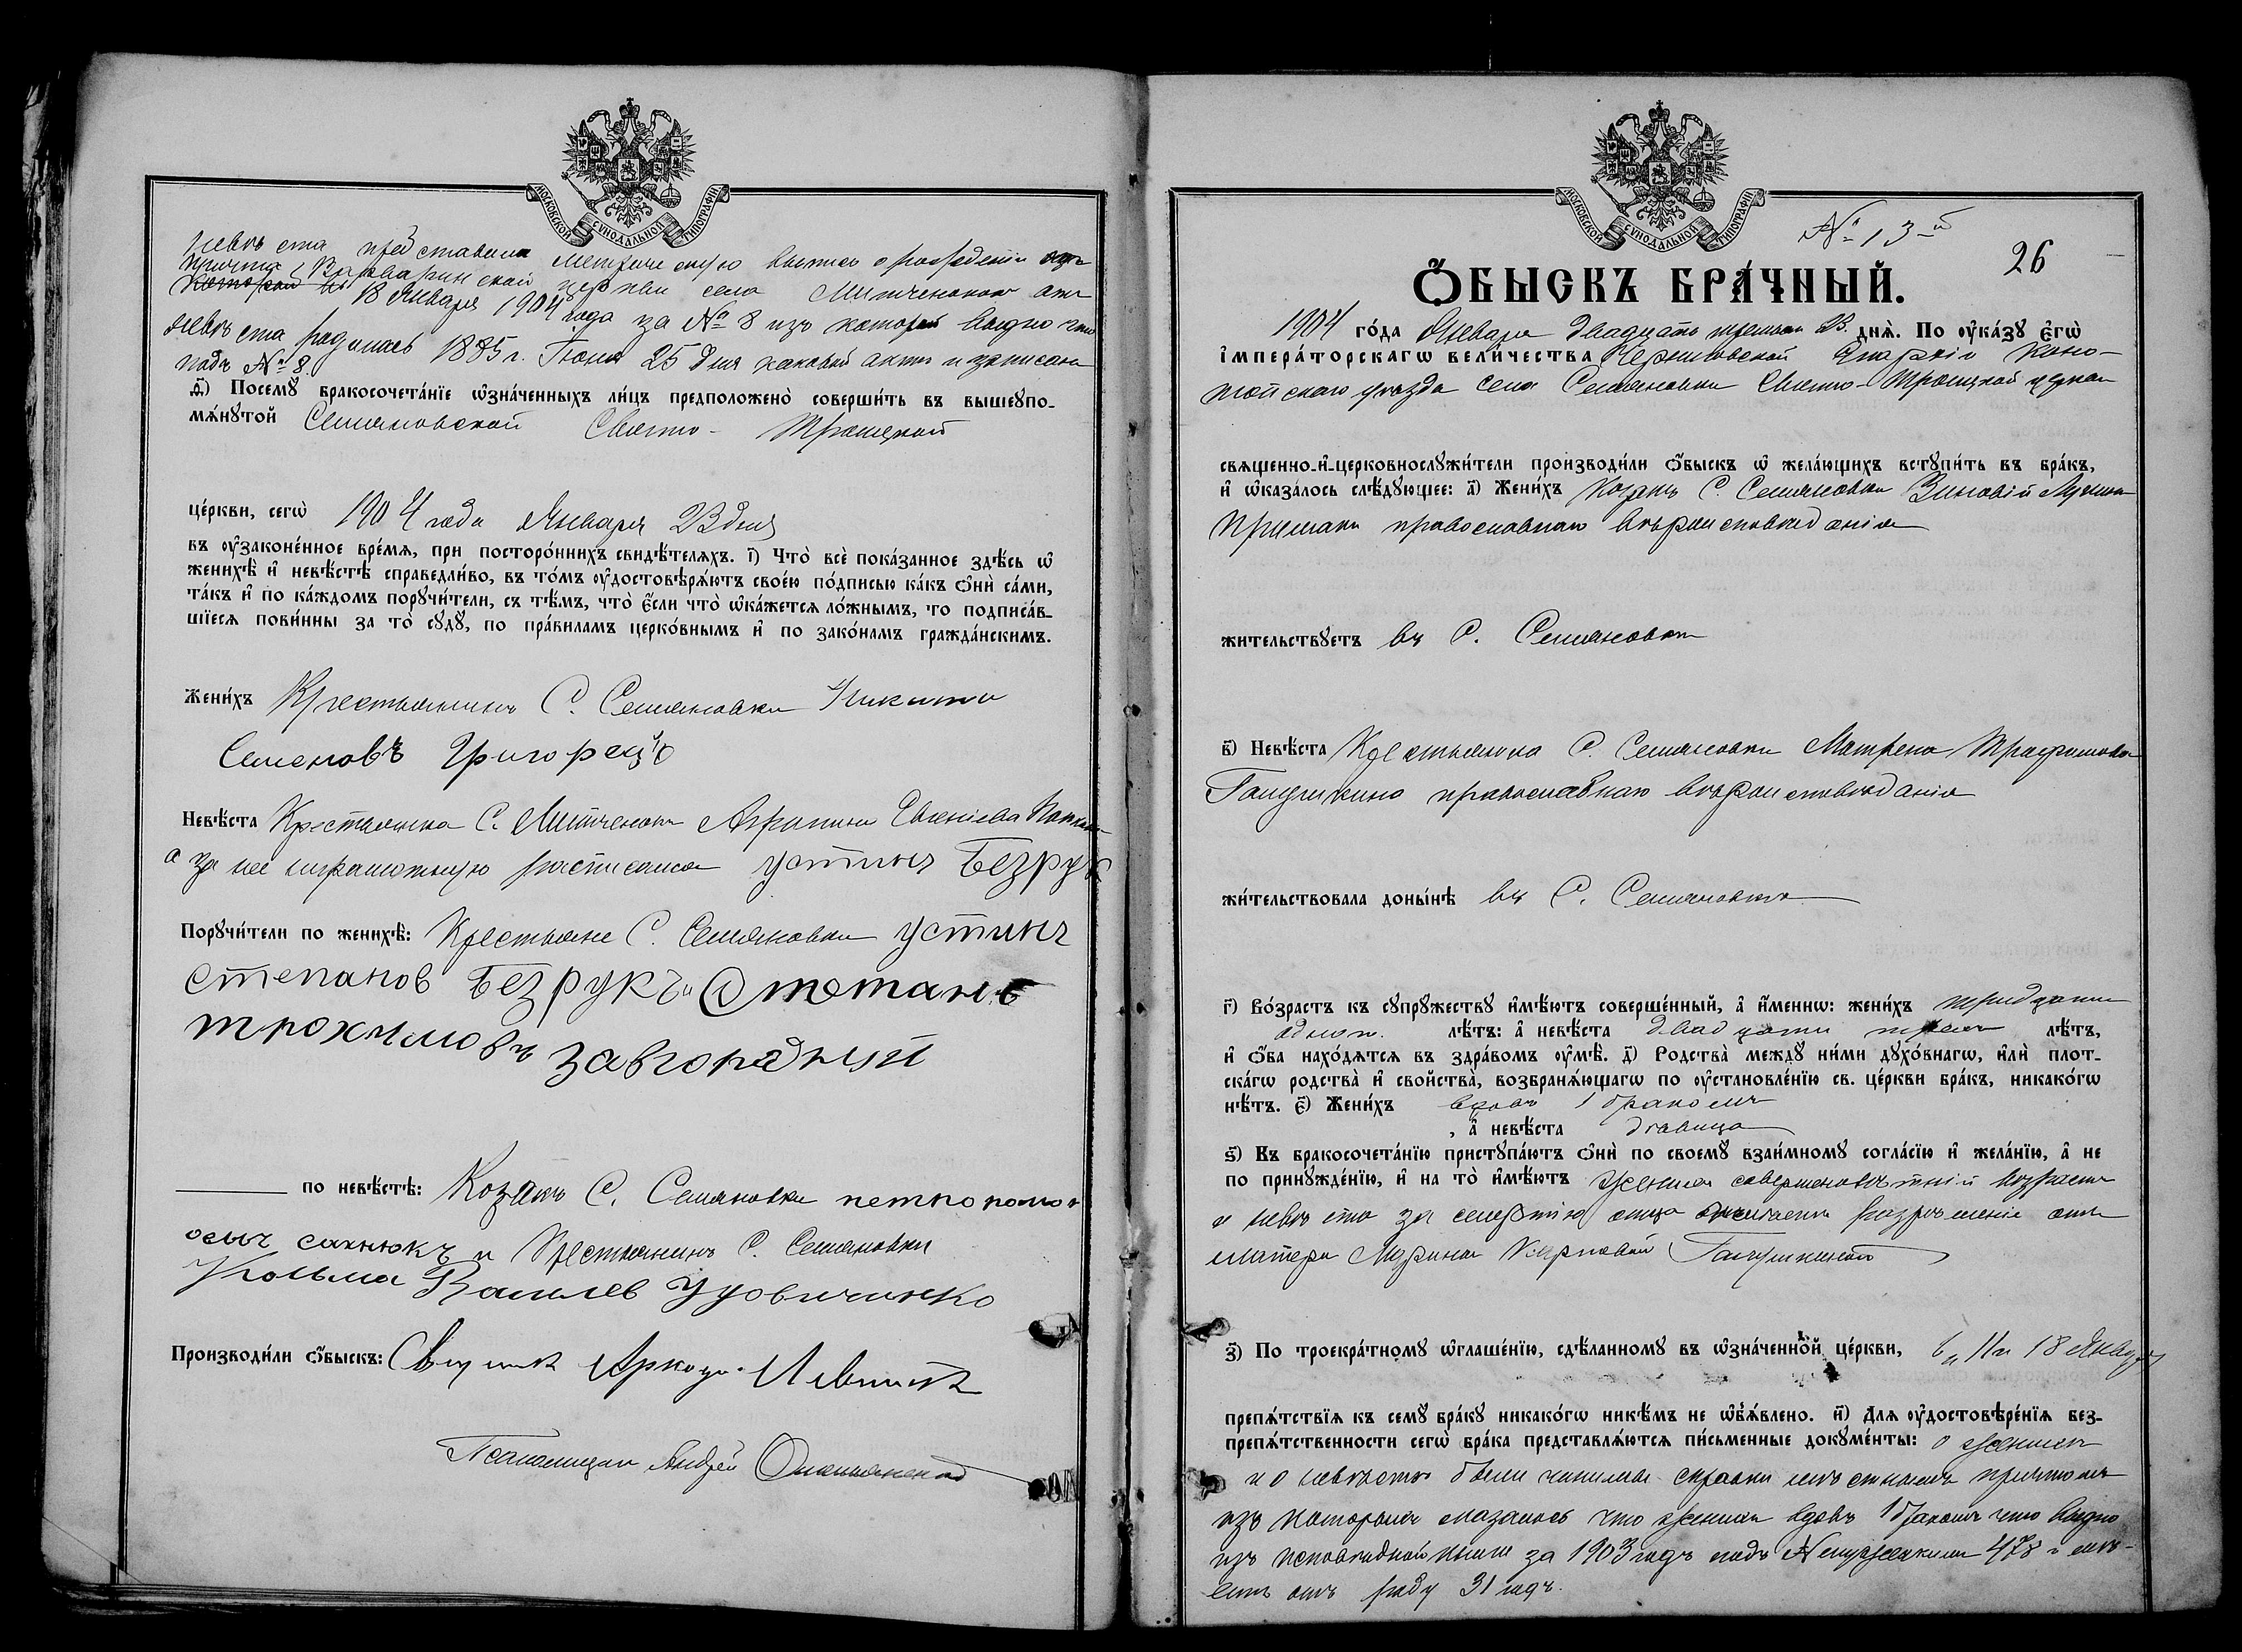 МОСКОВСКОЙ СѴНОДАЛЬНОЙ ТИПОГРАФІИ
невѣста представила метрическую выпись о рожденіи отъ
причта Варваринской церкви села Митченокъ отъ
18 Января 1904 года за № 8 изъ которой видно что
невѣста родилась 1885 г. Іюня 25 дня каковой актъ и записанъ
подъ № 8.
д҃і) Посемꙋ̀ бракосочета́нїе ѡ҆зна́ченныхъ ли́цъ предположено̀ соверши́ть въ вышеꙋпо-
мѧ́нꙋтой Семяновской Свято-Троицкой
це́ркви, сегѡ̀ 1904 года Января 23 дня
въ ᲂу҆законе́нное вре́мѧ, при посторо́ннихъ свидѣ́телѧхъ. і҃) Что̀ всѐ пока́занное здѣ́сь ѡ҆
женихѣ̀ и҆ невѣ́стѣ справедли́во, въ то́мъ ᲂу҆достовѣрѧ́ютъ свое́ю по́дписью ка́къ ѻ҆нѝ са́ми,
та́къ и҆ по ка́ждомъ порꙋчи́тели, съ тѣ́мъ, что̀ є҆́сли что̀ ѡ҆ка́жетсѧ ло́жнымъ, то подписа́в-
шїесѧ пови́нны за то̀ сꙋдꙋ̀, по пра́виламъ церко́внымъ и҆ по зако́намъ гражда́нскимъ.
Жени́хъ Крестьянинъ С. Семяновки Никита
Семеновъ Григорець
Невѣ́ста Крестьянка С. Митченокъ Агрипина Евгеніева
а за нее неграмотную расписался Устинъ Безрук
Порꙋчи́тели по женихѣ̀: Крестьяне С. Семяновки Устинъ
Степанов Безрукъ и Стетанъ
Трохимовъ Завгородний
по невѣ́стѣ: Козакъ С. Семяновки Петро
Сахнюкъ и Крестьянинъ С. Семяновки
Козьма Василев Удовиченко
Производи́ли ѻ҆́быскъ: Священ. Аркадій Левитскій
Псаломщикъ Андрей
МОСКОВСКОЙ СѴНОДАЛЬНОЙ ТИПОГРАФІИ
№ 13-й
26
Ѻ҆́БЫСКЪ БРА́ЧНЫЙ.
1904 го́да Января двадцать третьяго 23. днѧ̀. По ᲂу҆ка́зꙋ є҆гѡ̀
і҆мпера́торскагѡ вели́чества Черниговской Епархіи Коно-
топскаго уѣзда села Семяновки Свято-Троицкой церкви
свѧщенно-и҆-церковнослꙋжи́тели производи́ли ѻ҆́быскъ ѡ҆ жела́ющихъ встꙋпи́ть въ бра́къ,
и҆ ѡ҆каза́лось слѣ́дꙋющее: а҃) Жени́хъ Козакъ С. Семяновки Зиновій Лукинъ
Примакъ православнаго вѣроисповѣданія
жи́тельствꙋетъ въ С. Семяновкѣ
в҃) Невѣ́ста Крестьянка С. Семяновки Матрена Трафимова
Галушкина православнаго вѣроисповѣданія
жи́тельствовала доны́нѣ въ С. Семяновкѣ
г҃) Во́зрастъ къ сꙋпрꙋ́жествꙋ и҆мѣ́ютъ соверше́нный, а҆ и҆́меннѡ: жени́хъ тридцати
одного. лѣ́тъ: а҆ невѣ́ста двадцати трехъ лѣ́тъ,
и҆ ѻ҆́ба нахо́дѧтсѧ въ здра́вомъ ᲂу҆мѣ̀. д҃) Родства̀ междꙋ̀ ни́ми дꙋхо́внагѡ, и҆лѝ плот-
ска́гѡ родства̀ и҆ свойства̀, возбранѧ́ющагѡ по ᲂу҆становле́нїю св. це́ркви бра́къ, никако́гѡ
нѣ́тъ. є҃) Жени́хъ вдовъ 1 бракомъ
, а҆ невѣ́ста дѣвица
ѕ҃) Къ бракосочета́нїю пристꙋпа́ютъ ѻ҆нѝ по своемꙋ̀ взаи́мномꙋ согла́сїю и҆ жела́нїю, а҆ не
по принꙋжде́нїю, и҆ на то̀ и҆мѣ́ютъ женихъ совершеннолѣтній возрастъ
а невѣста за смертію отца разрѣшеніе отъ
матери Марины Карповой Галушкиной
з҃) По троекра́тномꙋ ѡ҆глаше́нїю, сдѣ́ланномꙋ въ ѡ҆зна́ченной це́ркви, 6, 11 и 18 Января
препѧ́тствїѧ къ семꙋ̀ бра́кꙋ никако́гѡ никѣ́мъ не ѡ҆б̾ѧ́влено. и҃) Длѧ ᲂу҆достовѣре́нїѧ без-
препѧ́тственности сегѡ̀ бра́ка представлѧ́ютсѧ пи́сьменные докꙋме́нты: о женихѣ
и о невѣстѣ были чинимы справки мѣстнымъ причтомъ
изъ которыхъ оказалось что женихъ вдовъ 1 бракомъ что видно
изъ исповѣдной книги за 1903 годъ подъ № мужскимъ 478 и имѣ-
етъ отъ роду 31 годъ.